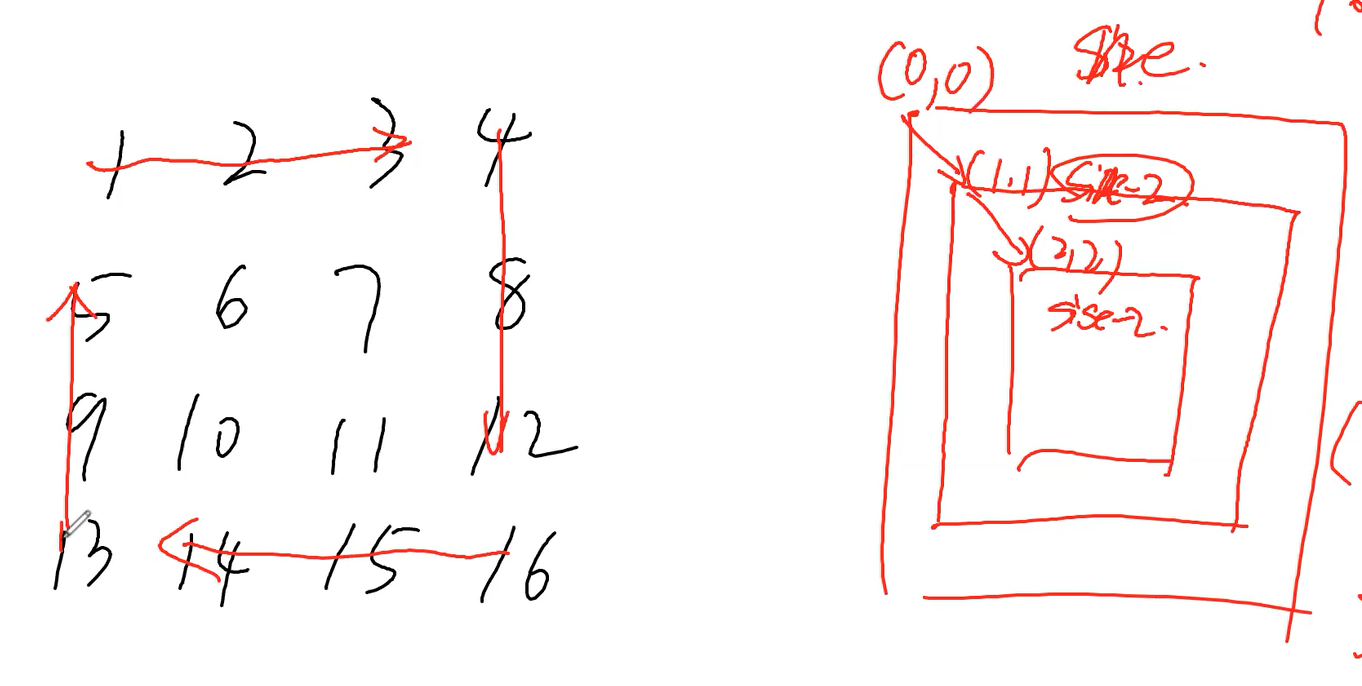 1 2 3 4
5 6 7 8
9 10 11 12
13 14 15 16
(0,0) size.
(1,1) size-2
(2,2,)
size-2.